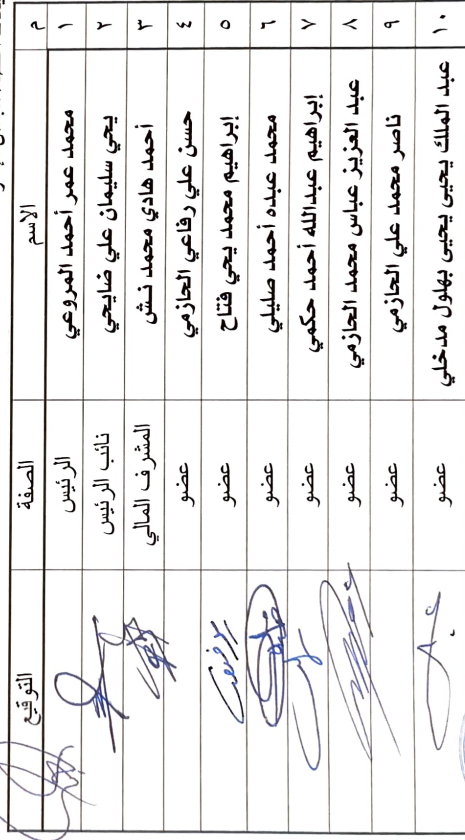 م الاسم الصفة التوقيع
١ محمد عمر أحمد المروعي الرئيس
٢ يحي سليمان علي ضايحي نائب الرئيس
٣ أحمد هادي محمد نش المشرف المالي
٤ حسن علي رفاعي الحازمي عضو
٥ إبراهيم محمد يحي فتاح عضو
٦ محمد عبده أحمد صليلي عضو
٧ إبراهيم عبدالله أحمد حكمي عضو
٨ عبد العزيز عباس محمد الحازمي عضو
٩ ناصر محمد علي الحازمي عضو
١٠ عبد الملك يحيى يحيى بهلول مدخلي عضو